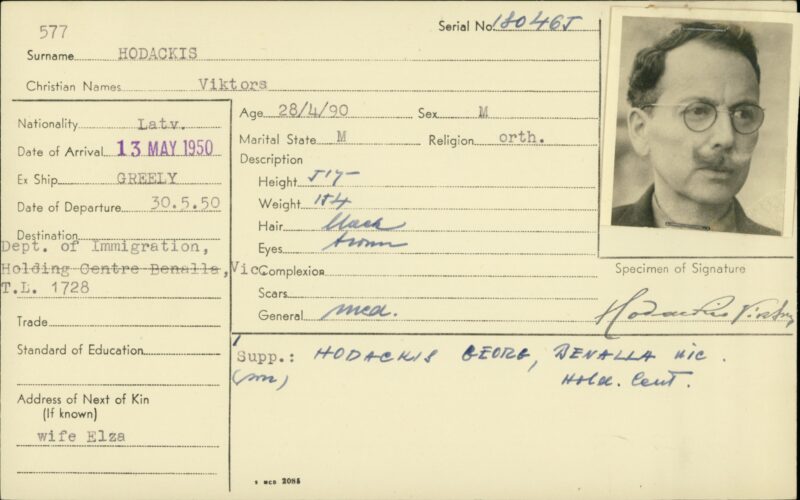 577
Serial No. 180465
Surname HODACKIS
Christian Names Viktors
Nationality Latv.
Date of Arrival 13 MAY 1950
Ex Ship GREELY
Date of Departure 30.5.50
Destination
Dept. of Immigration,
Holding Centre Benalla, Vic.
T.L. 1728
Trade
Standard of Education
Address of Next of Kin
(If known)
wife Elza
Age 28/4/90 Sex M
Marital State M Religion orth.
Description
Height 5'7"
Weight 154
Hair black
Eyes brown
Complexion
Scars
General med.
Specimen of Signature
Hodackis Viktors
Supp.: HODACKIS GEORG, BENALLA VIC.
(son) Hold. Cent.
1 MCD 2085